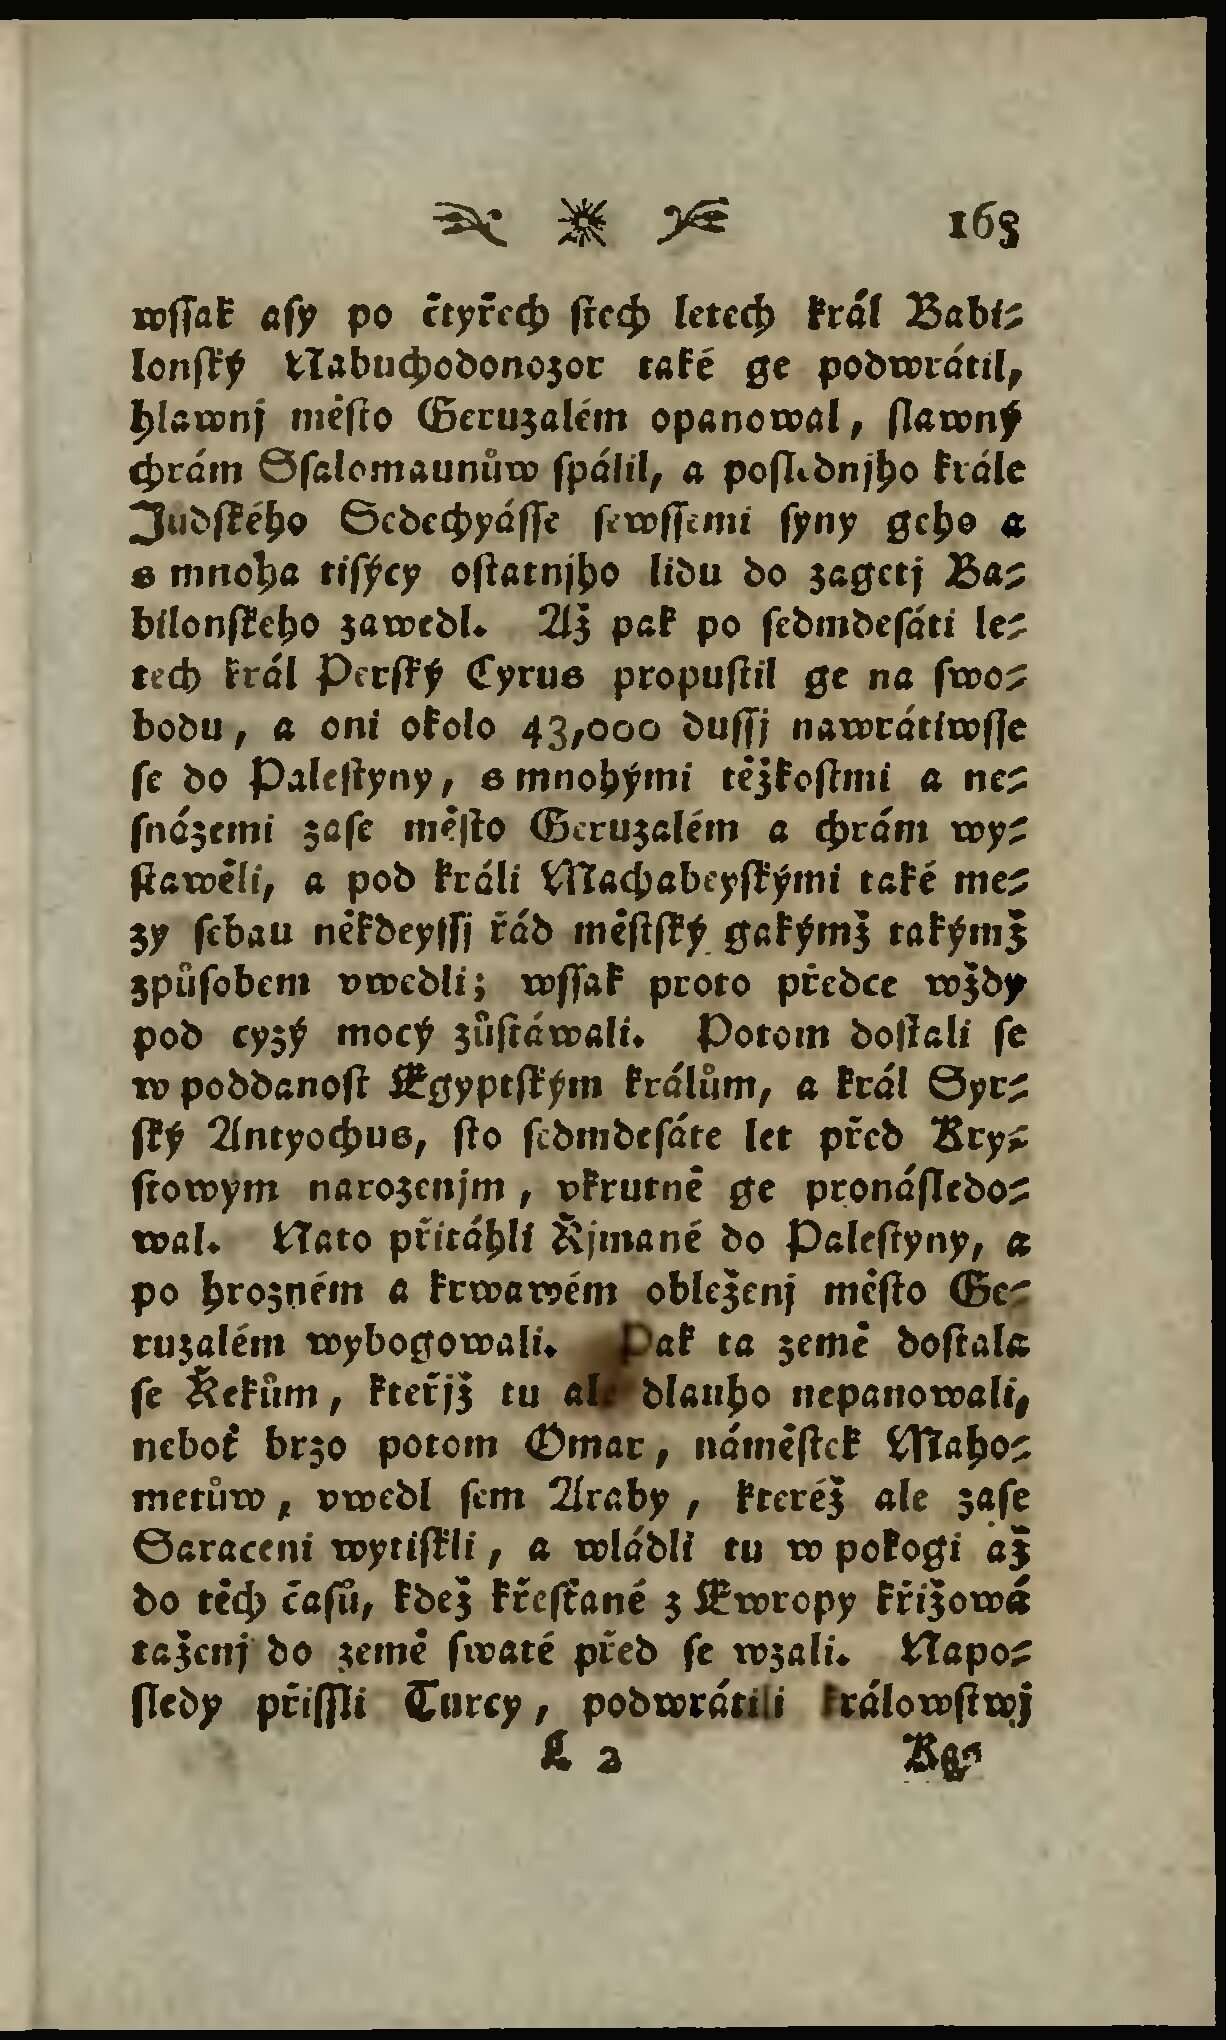 163
wſſak aſy po čtyřech ſtech letech král Babi⸗
lonſký Nabuchodonozor také ge podwrátil,
hlawnj měſto Geruzalém opanowal, ſlawný
chrám Sſalomaunůw ſpálil, a poſlednjho krále
Judſkého Sedechyáſſe ſewſſemi ſyny geho a
s mnoha tiſýcy oſtatnjho lidu do zagetj Ba⸗
bilonſkeho zawedl. Až pak po ſedmdeſáti le⸗
tech král Perſký Cyrus propuſtil ge na ſwo⸗
bodu, a oni okolo 43,000 duſſj nawrátiwſſe
ſe do Paleſtyny, s mnohými těžkoſtmi a ne⸗
ſnázemi zaſe měſto Geruzalém a chrám wy⸗
ſtawěli, a pod králi Machabeyſkými také me⸗
zy ſebau někdeyſſj řád měſtſký gakýmž takýmž
způſobem vwedli; wſſak proto předce wždy
pod cyzý mocý zůſtáwali. Potom doſtali ſe
w poddanoſt Egyptſkým králům, a král Syr⸗
ſký Antyochus, ſto ſedmdeſáte let před Kry⸗
ſtowým narozenjm, vkrutně ge pronáſledo⸗
wal. Nato přitáhli Řjmané do Paleſtyny, a
po hrozném a krwawém obleženj měſto Ge⸗
ruzalém wybogowali. Pak ta země doſtala
ſe Řekům, kteřjž tu ale dlauho nepanowali,
neboť brzo potom Omar, náměſtek Maho⸗
metůw, vwedl ſem Araby, kteréž ale zaſe
Saraceni wytiſkli, a wládli tu w pokogi až
do těch čaſů, kdež křeſťané z Ewropy křižowá
taženj do země ſwaté před ſe wzali. Napo⸗
ſledy přiſſli Turcy, podwrátili králowſtwj
L 2 Rg⸗